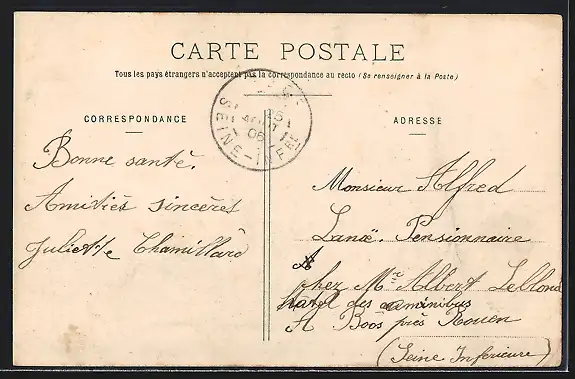 CARTE POSTALE
Tous les pays étrangers n'acceptent pas la correspondance au recto (Se renseigner à la Poste)
CORRESPONDANCE
ADRESSE
25
AOUT
06
SEINE-INFRE
Bonne santé.
Amitiés sincères
Juliette Chamillard
Monsieur Alfred
Lanoë. Pensionnaire
chez Mr Albert Leblond
hôtel des omnibus
A Boos près Rouen
(Seine Inférieure)